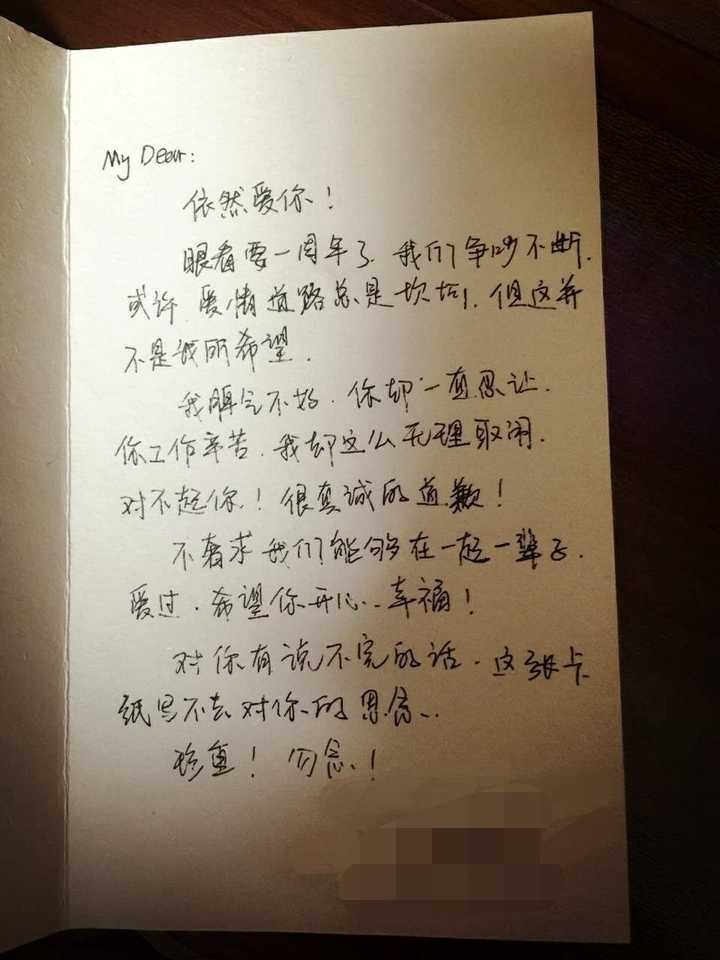 My Dear:
依然爱你！
眼看要一周年了．我们争吵不断．
或许．爱情道路总是坎坷！但这并
不是我所希望．
我脾气不好．你却一直忍让．
你工作辛苦．我却这么无理取闹．
对不起你．！很真诚的道歉！
不奢求我们能够在一起一辈子．
爱过．希望你开心．幸福！
对你有说不完的话．这张卡
纸写不去对你的思念．
珍重！勿念！